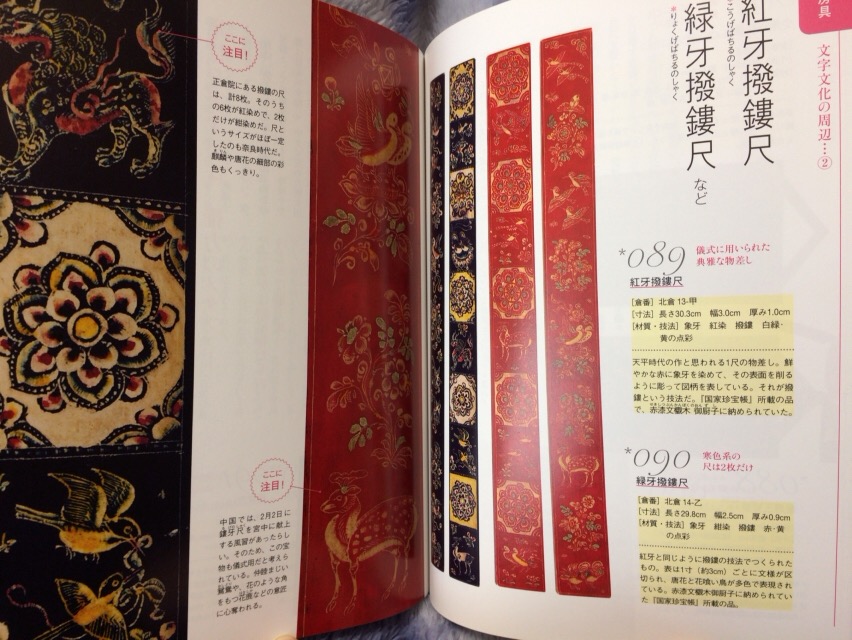 ここに
注目!
正倉院にある撥鏤の尺
は、計8枚。そのうち
の6枚が紅染めで、2枚
だけが紺染めだ。尺と
いうサイズがほぼ一定
したのも奈良時代だ。
麒麟や唐花の細部の彩
色もくっきり。
ここに
注目!
中国では、2月2日に
鏤牙尺を宮中に献上
する風習があったらし
い。そのため、この宝
物も儀式用だと考えら
れている。仲睦まじい
や、花のような角
をもつ花鹿などの意匠
に心奪われる。
房具
文字文化の周辺…②
紅牙撥鏤尺
こうげばちるのしゃく
緑牙撥鏤尺 など
*りょくげばちるのしゃく
*089 儀式に用いられた
典雅な物差し
紅牙撥鏤尺
[倉番] 北倉 13-甲
[寸法] 長さ30.3cm 幅3.0cm 厚み1.0cm
[材質・技法] 象牙 紅染 撥鏤 白緑・
黄の点彩
天平時代の作と思われる1尺の物差し。鮮
やかな赤に象牙を染めて、その表面を削る
ように彫って図柄を表している。それが撥
鏤という技法だ。『国家珍宝帳』所載の品
で、赤漆文欟木 御厨子に納められていた。
*090 寒色系の
尺は2枚だけ
緑牙撥鏤尺
[倉番] 北倉 14-乙
[寸法] 長さ29.8cm 幅2.5cm 厚み0.9cm
[材質・技法] 象牙 紺染 撥鏤 赤・黄
の点彩
紅牙と同じように撥鏤の技法でつくられた
もの。表は1寸(約3cm)ごとに文様が区
切られ、唐花と花喰い鳥が多色で表現され
ている。赤漆文欟木御厨子に納められてい
た『国家珍宝帳』所載の品。